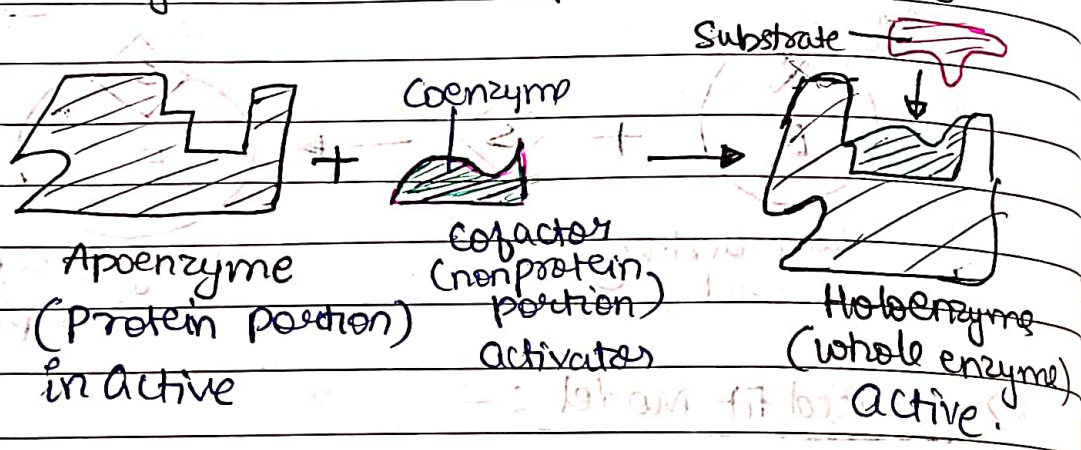 Substrate
Coenzyme
+
Apoenzyme
(Protein portion)
in active
cofactor
(nonprotein
portion)
activator
Holoenzyme
(whole enzyme)
active.